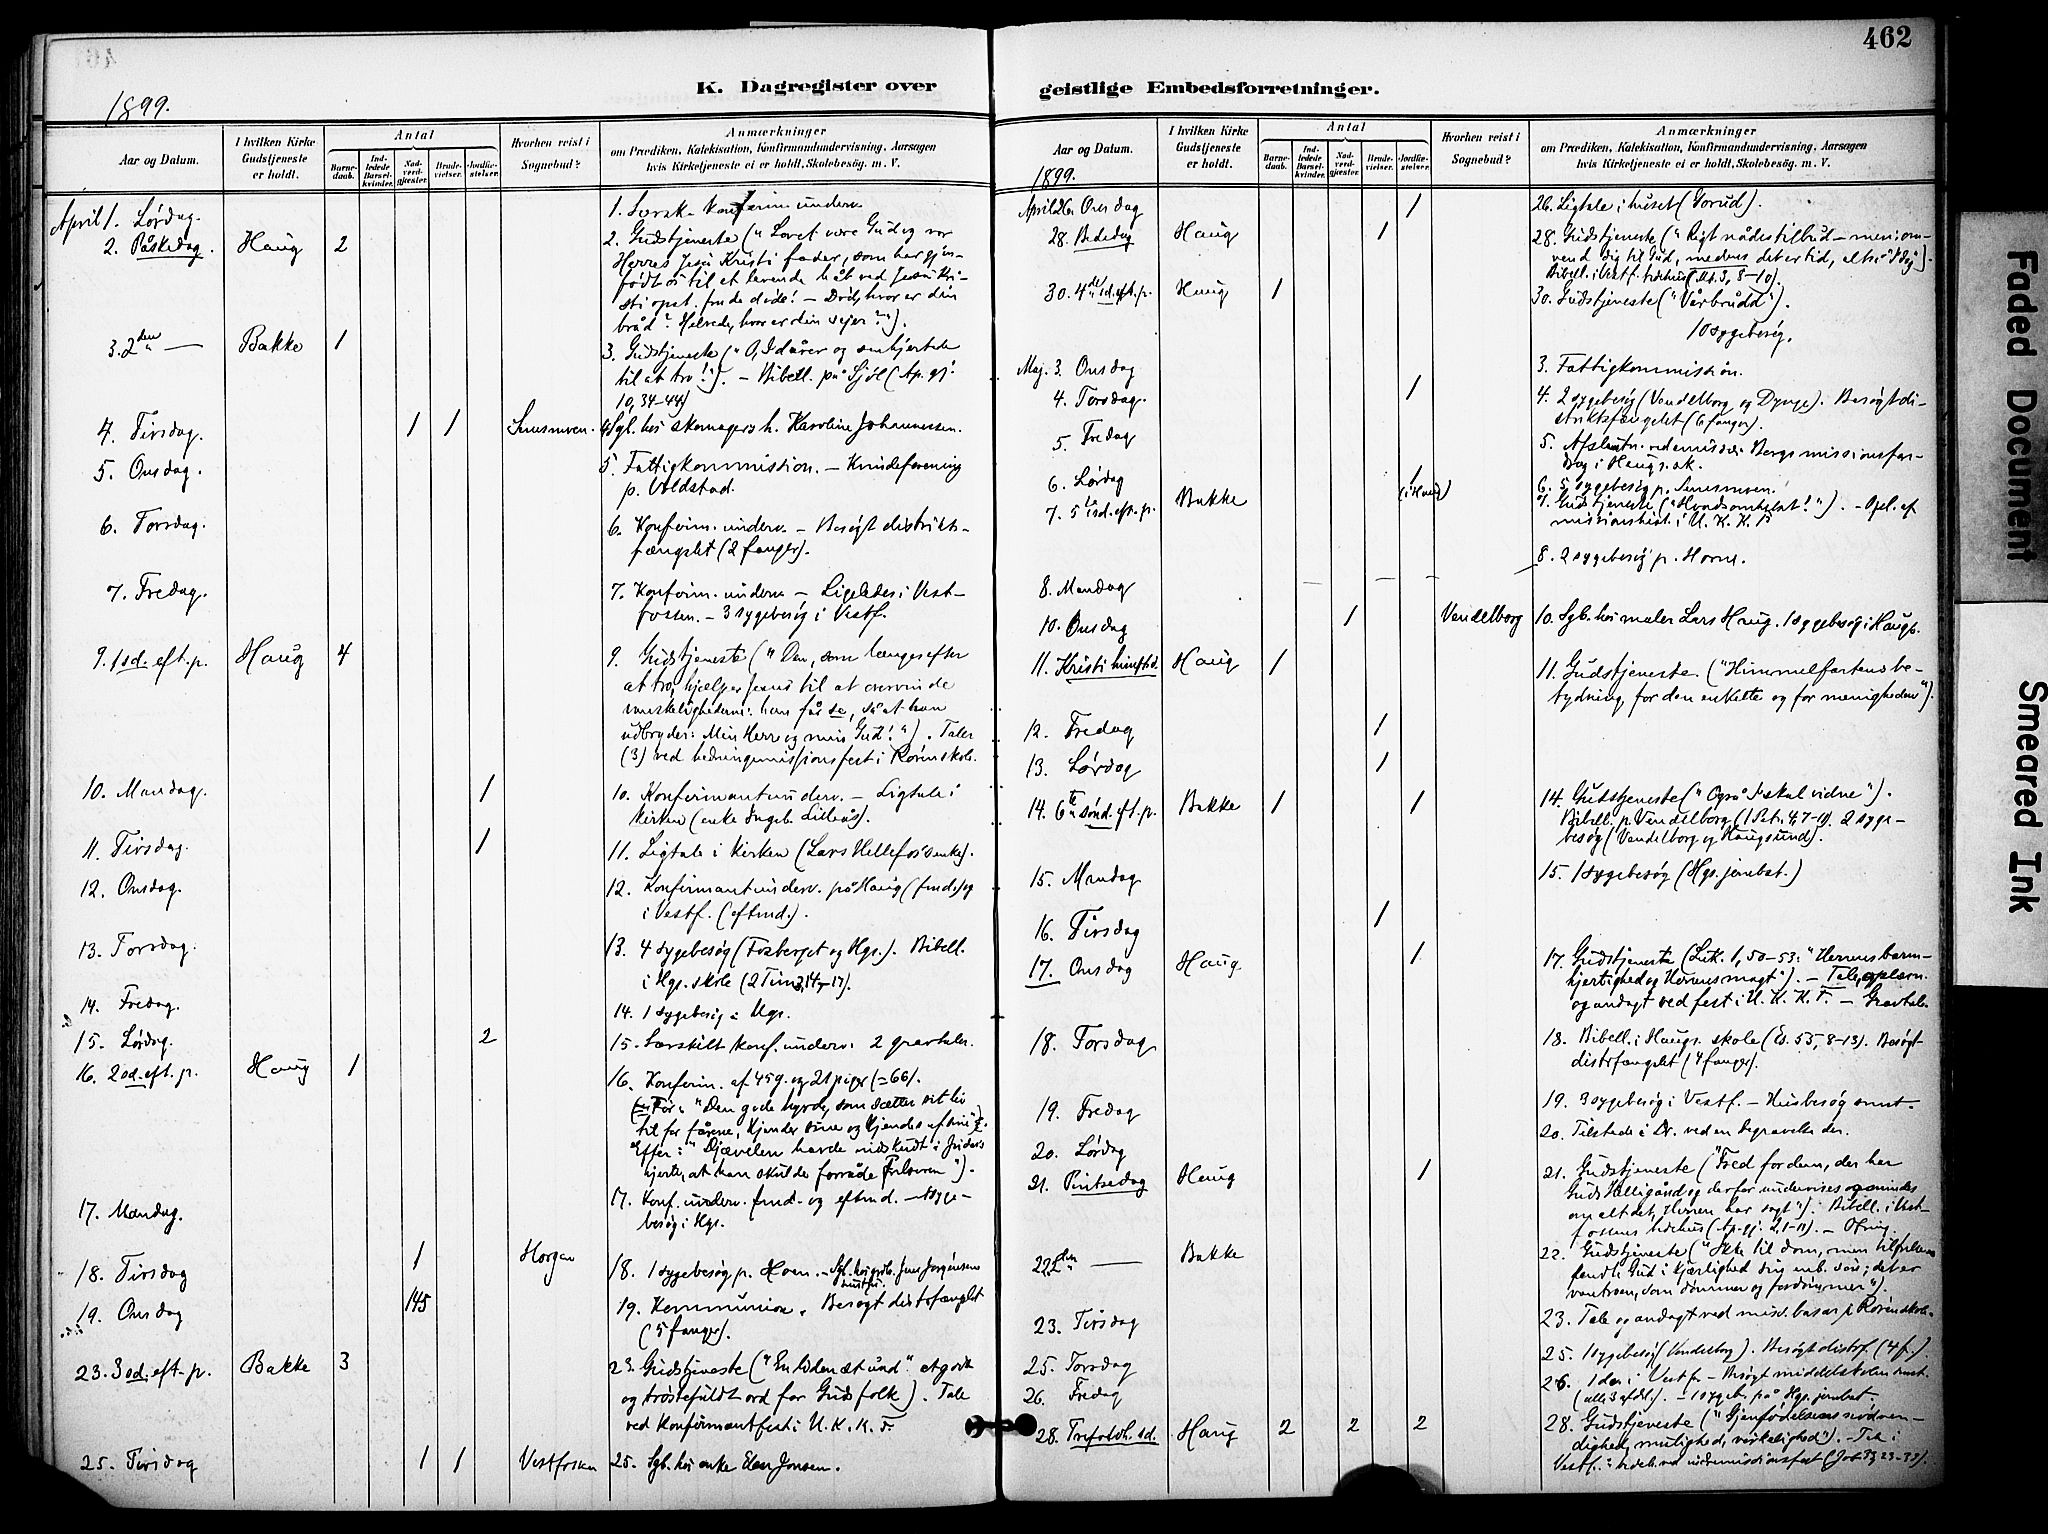 462
K. Dagregister over
geistlige Embedsforretninger.
1899.
Aar og Datum.
I hvilken Kirke Gudstjeneste er holdt.
Antal
Barnedaab.
Indledede Barselkvinder.
Nadverdgjæster.
Brudevielser.
Jordfæstelser.
Hvorhen reist i Sognebud?
Anmærkninger
om Prædiken, Katekisation, Konfirmandundervisning, Aarsagen
hvis Kirketjeneste ei er holdt, Skolebesög. m. V.
April 1. Lørdag.
1. Særsk. konfirm. underv.
2. Påskedag. Haug 2
2. Gudstjeneste ("Lovet være Gud og vor
Herres Jesu Kristi fader, som har gjen-
født os til et levende håb ved Jesu Kri-
sti opst. fra de døde! – Død, hvor er din
bråd? Helvede, hvor er din sejer?").
3. 2den — Bakke 1
3. Gudstjeneste ("O, I dårer og senhjertede
til at tro!"). – Bibell. på Sjøl (Ap. gj.
10, 34–44)
4. Tirsdag. 1 1
4. Sgb. hos skomagersh. Karoline Johannessen.
5. Onsdag.
5. Fattigkommission. – Kvindeforening
p. Voldstad.
6. Torsdag.
6. Konfirm. underv. – Besøgt distrikts-
fængslet (2 fanger).
7. Fredag.
7. Konfirm. underv. – Ligeledes i Vest-
fossen. – 3 sygebesøg i Vestf.
9. 1 sd. eft. p. Haug 4
9. Gudstjeneste ("Den, som længes efter
at tro, hjælper Jesus til at overvinde
vanskelighederne: han får se, så at han
udbryder: Min Herre og min Gud!"). Taler
(3) ved hedningemissionsfest i Rørin skole.
10. Mandag. 1
10. Konfirmantunderv. – Ligtale i
kirken (enke Ingeb. Lilleås).
11. Tirsdag. 1
11. Ligtale i kirken (Lars Hellefos's enke).
12. Onsdag.
12. Konfirmantunderv. på Haug (fmd.) og
i Vestf. (eftmd.).
13. Torsdag.
13. 4 sygebesøg (Fosberget og Hgs.). Bibell.
i Hgs. skole (2 Tim 3, 14–17).
14. Fredag.
14. 1 sygebesøg i Hgs.
15. Lørdag. 2
15. Særskilt konf. underv. 2 gravtaler.
16. 2 sd. eft. p. Haug 1
16. Konfirm. af 45 g. og 21 piger (=66).
Før: "Den gode hyrde, som sætter sit liv
til for fårene, kjender sine og kjendes af sine".
Efter: "Djævelen havde indskudt i Judas's
hjerte, at han skulde forråde Frelseren").
17. Mandag.
17. Konf. underv. fmd. og eftmd. – syge-
besøg i Hgs.
18. Tirsdag 1 Horgen
18. 1 sygebesøg p. Hoen. – Sgb. hos grdb. Jens Jørgensens
hustru.
19. Onsdag 145
19. Kommunion. Besøgt distrfængslet
(5 fanger).
23. 3 sd. eft. p. Bakke 3
23. Gudstjeneste ("En liden stund" et godt
og trøstefuldt ord for Guds folk). Tale
ved konfirmantfest i U. K. K. F.
25. Tirsdag 1 1 Vestfossen
25. Sgb. hos enke Elen Jonsen.
Aar og Datum.
I hvilken Kirke Gudstjeneste er holdt.
Antal
Barnedaab.
Indledede Barselkvinder.
Nadverdgjæster.
Brudevielser.
Jordfæstelser.
Hvorhen reist i Sognebud?
Anmærkninger
om Prædiken, Katekisation, Konfirmandundervisning, Aarsagen
hvis Kirketjeneste ei er holdt, Skolebesög. m. V.
1899.
April 26. Onsdag 1
26. Ligtale i huset (Gorud).
28. Bededag Haug 1
28. Gudstjeneste ("Rigt nådestilbud – men: om-
vend dig til Gud, medens det er tid, altså 'i dag'").
Bibell. i Vestf. bedehus (Mt. 3, 8–10).
30. 4de sd. eft. p. Haug 1
30. Gudstjeneste ("Vårbrudd").
10 sygebesøg.
Maj. 3. Onsdag
3. Fattigkommission.
4. Torsdag. 1
4. 2 sygebesøg (Vendelborg og Dynge). Besøgt di-
striktsfængslet (6 fanger).
5. Fredag
5. Afslutn. ved emissær Bergs missionsfor-
drag i Haugs. sk.
6. Lørdag 1
6. 5 sygebesøg p.
7. 5 sd. eft. p. Bakke (i Haug)
7. Gudstjeneste ("Hvad som helst!"). – Opl. af
missionshist. i U. K. K. F
8. Mandag
8. 2 sygebesøg p. Horne.
10. Onsdag 1 Vendelborg
10. Sgb. hos maler Lars Haug. 1 sygebesøg i Haugs.
11. Kristi himfd. Haug 1
11. Gudstjeneste ("Himmelfartens be-
tydning for den enkelte og for menigheden").
12. Fredag 1
13. Lørdag 1
14. 6te sønd. eft. p. Bakke 1 1
14. Gudstjeneste ("Også I skal vidne").
Bibell. p. Vendelborg (1 Pet. 4, 7–11). 2 syge-
besøg (Vendelborg og Haugsund).
15. Mandag
15. 1 sygebesøg (Hgs. jernbst.)
16. Tirsdag 1
17. Onsdag Haug 1
17. Gudstjeneste (Luk. 1, 50–53: "Herrens barm-
hjertighed og Herrens magt"). – Tale, oplæsn.
og andagt ved fest i U. K. K. F. – Gravtale.
18. Torsdag
18. Bibell. i Haugs. skole (Es. 55, 8–13). Besøgt
distrfængslet (4 fanger).
19. Fredag
19. 3 sygebesøg i Vestf. – Husbesøg smst.
20. Lørdag
20. Tilstede i Dr. ved en begravelse der.
21. Pintsedag Haug 1
21. Gudstjeneste ("Fred for dem, der har
Guds Helligånd og derfor undervises og mindes
om alt det, Herren har sagt"). Bibell. i Vest-
fossens bedehus (Ap. gj. 2, 1–11). – Ofring.
22. 2den — Bakke
22. Gudstjeneste ("Ikke til dom, men til frelse
sendte Gud i kjærlighed sin enb. søn; det er
vantroen, som dømmer og fordømmer").
23. Tirsdag
23. Tale og andagt ved miss. basar p. Rørin skole.
25. Torsdag
25. 1 sygebesøg (Vendelborg). Besøgt distrf. (4 f.).
26. Fredag
26. 1 do. i Vestf. – Besøgt middelskolen smst.
(alle 3 afdl.). – 1 sygeb. på Hgs. jernbst.
28. Trefoldh. sd. Haug 2 2 2
28. Gudstjeneste ("Gjenfødelsens nødven-
dighed, mulighed, virkelighed"). – Tale i
Vestf. bedeh. ved indremissionsfest
Faded Document
Smeared Ink